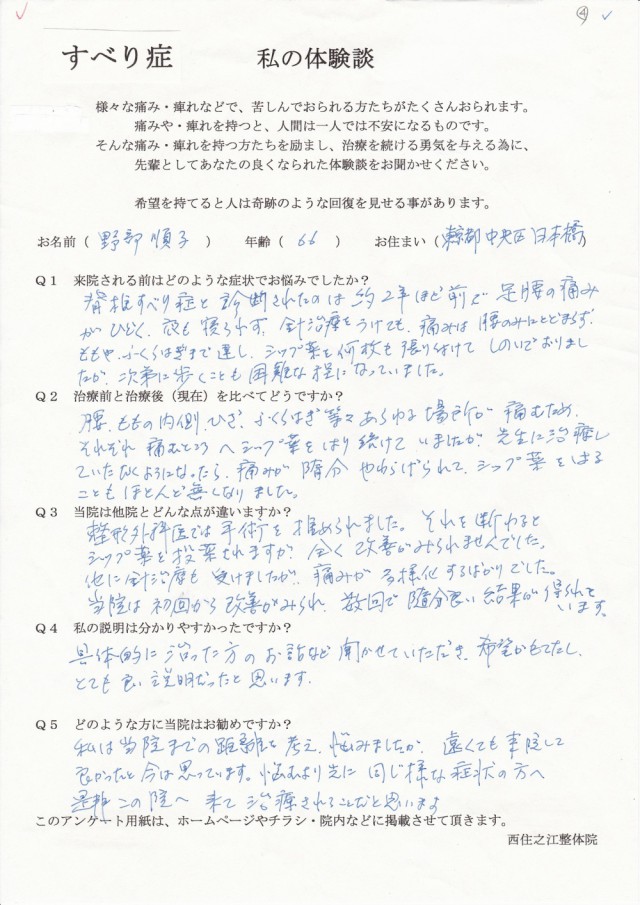 ④
すべり症 私の体験談
様々な痛み・痺れなどで、苦しんでおられる方たちがたくさんおられます。
痛みや・痺れを持つと、人間は一人では不安になるものです。
そんな痛み・痺れを持つ方たちを励まし、治療を続ける勇気を与える為に、
先輩としてあなたの良くなられた体験談をお聞かせください。
希望を持てると人は奇跡のような回復を見せる事があります。
お名前（ 野部 順子 ） 年齢（ 66 ） お住まい（東京都中央区日本橋）
Q1 来院される前はどのような症状でお悩みでしたか？
脊椎すべり症と診断されたのは約2年ほど前で 足腰の痛み
がひどく、夜も寝られず、針治療をうけても、痛みは腰のみにとどまらず、
ももや、ふくらはぎまで達し、シップ薬を何枚も張り付けてしのいでおりまし
たが、次第に歩くことも困難な程になっていました。
Q2 治療前と治療後（現在）を比べてどうですか？
腰、ももの内側、ひざ、ふくらはぎ等々あらゆる場所が痛むため、
それぞれ痛むところへシップ薬をはり続けていましたが、先生に治療し
ていただくようになったら、痛みが随分やわらげられて、シップ薬をはる
こともほとんど無くなりました。
Q3 当院は他院とどんな点が違いますか？
整形外科医では手術を推められました。それを断わると
シップ薬を投薬されますが、全く改善がみられませんでした。
他に針治療も受けましたが、痛みが多様化するばかりでした。
当院は初回から改善がみられ、数回で随分良い結果が得られて
います。
Q4 私の説明は分かりやすかったですか？
具体的に治った方のお話など聞かせていただき、希望がもてたし、
とても良い説明だったと思います。
Q5 どのような方に当院はお勧めですか？
私は当院までの距離を考え、悩みましたが、遠くても来院して
良かったと今は思っています。悩むより先に同じ様な症状の方へ
是非この院へ来て治療されることだと思います
このアンケート用紙は、ホームページやチラシ・院内などに掲載させて頂きます。
西住之江整体院